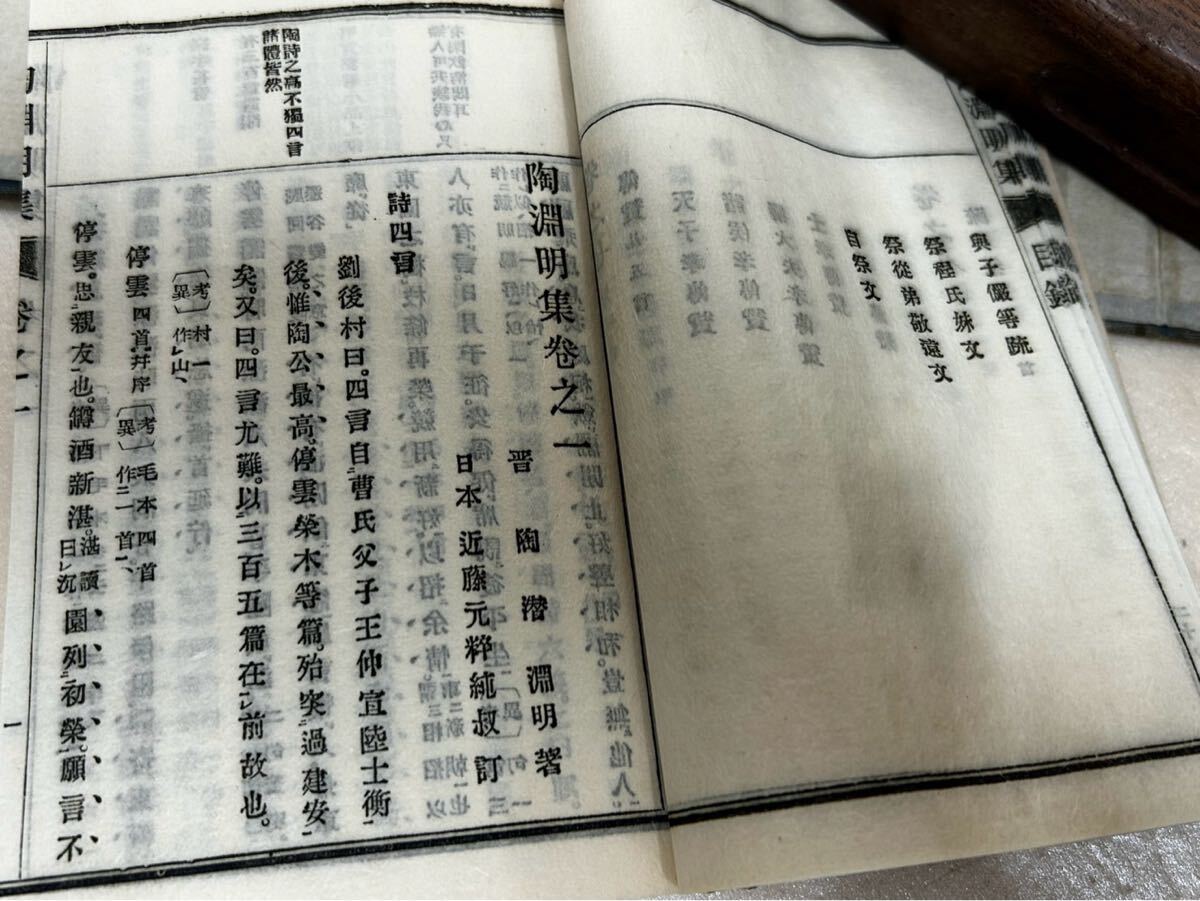 淵明集
目錄
與子儼等疏
祭程氏妹文
祭從弟敬遠文
自祭文
陶詩之高不獨四言
諸體皆然
陶淵明集卷之一
晉 陶潛 淵明著
日本 近藤元粹純叔訂
詩四言
劉後村曰。四言自曹氏父子王仲宣陸士衡
後。惟陶公最高。停雲榮木等篇。殆突過建安
矣。又曰。四言尤難。以三百五篇在前故也。
〔考異〕村一作山、
停雲四首幷序〔考異〕毛本四首作一首、
停雲。思親友也。罇酒新湛。湛讀曰沉園列初榮。願言不
陶淵明集 卷之一
一